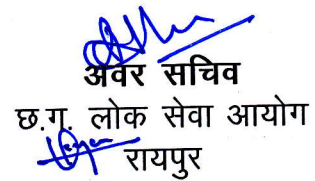 अवर सचिव
छ.ग. लोक सेवा आयोग
रायपुर